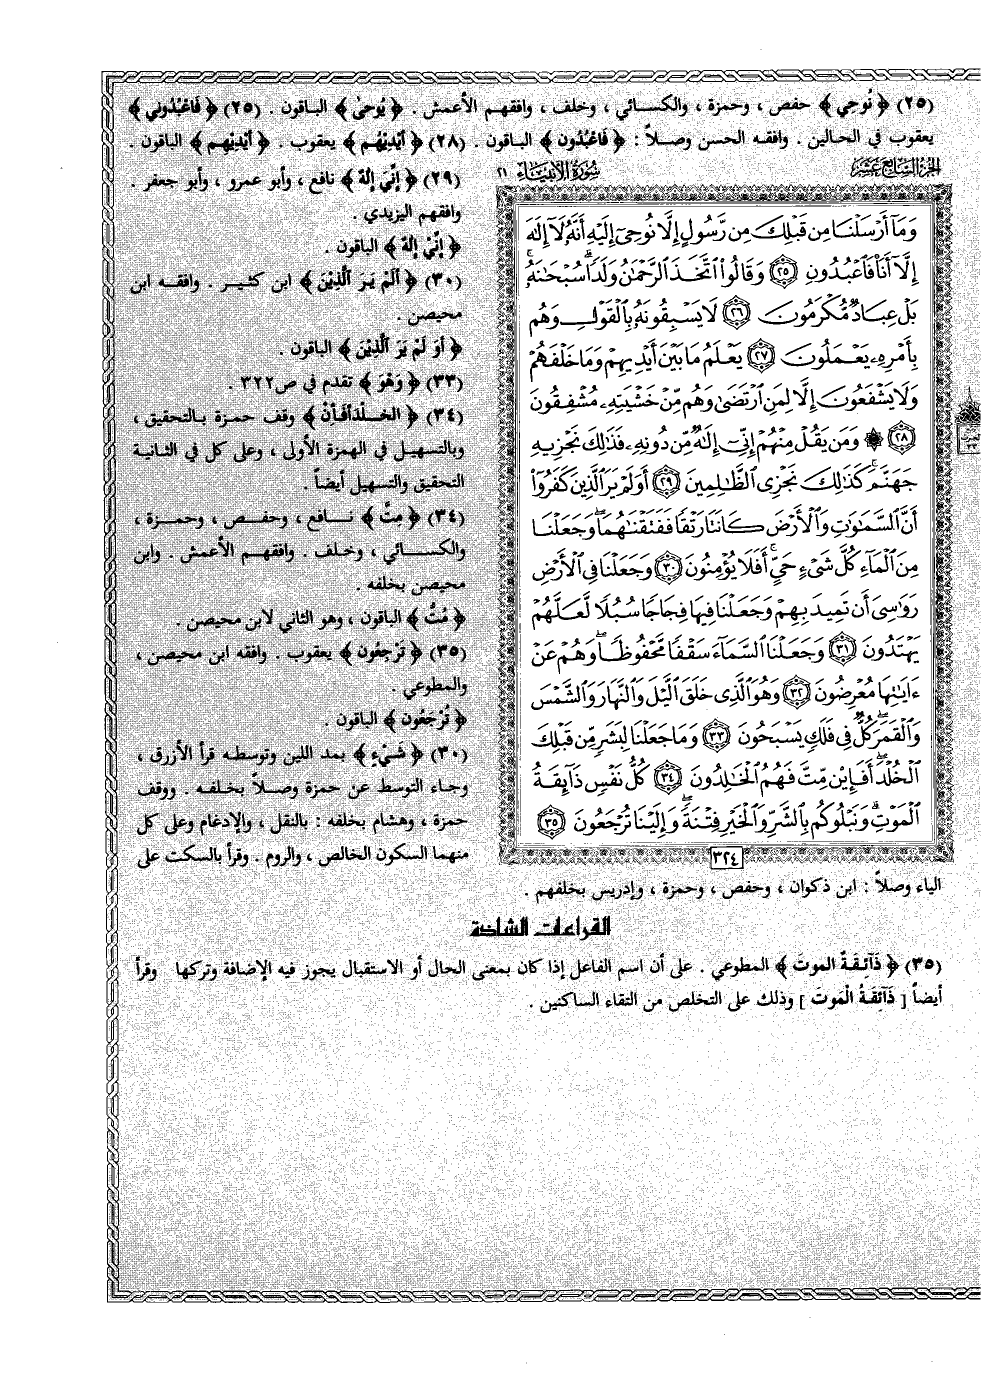 (٢٥) ﴿ نُوحِي ﴾ حفص ، وحمزة ، والكسائي ، وخلف ، وافقهم الأعمش . ﴿ يُوحَىٰ ﴾ الباقون . (٢٥) ﴿ فَاعْبُدُونِي ﴾
يعقوب في الحالين . وافقه الحسن وصلاً : ﴿ فَاعْبُدُون ﴾ الباقون . (٢٨) ﴿ أَيْدِيْهُم ﴾ يعقوب . ﴿ أَيْدِيْهِم ﴾ الباقون .
الجزء السابع عشر
سُورَةُ الأنبيَاء ٢١
وَمَآ أَرْسَلْنَا مِن قَبْلِكَ مِن رَّسُولٍ إِلَّا نُوحِىٓ إِلَيْهِ أَنَّهُۥ لَآ إِلَٰهَ
إِلَّآ أَنَا۠ فَٱعْبُدُونِ ٢٥ وَقَالُوا۟ ٱتَّخَذَ ٱلرَّحْمَٰنُ وَلَدًا ۗ سُبْحَٰنَهُۥ ۚ
بَلْ عِبَادٌ مُّكْرَمُونَ ٢٦ لَا يَسْبِقُونَهُۥ بِٱلْقَوْلِ وَهُم
بِأَمْرِهِۦ يَعْمَلُونَ ٢٧ يَعْلَمُ مَا بَيْنَ أَيْدِيهِمْ وَمَا خَلْفَهُمْ
وَلَا يَشْفَعُونَ إِلَّا لِمَنِ ٱرْتَضَىٰ وَهُم مِّنْ خَشْيَتِهِۦ مُشْفِقُونَ
٢٨ ۞ وَمَن يَقُلْ مِنْهُمْ إِنِّىٓ إِلَٰهٌ مِّن دُونِهِۦ فَذَٰلِكَ نَجْزِيهِ
جَهَنَّمَ ۚ كَذَٰلِكَ نَجْزِى ٱلظَّٰلِمِينَ ٢٩ أَوَلَمْ يَرَ ٱلَّذِينَ كَفَرُوٓا۟
أَنَّ ٱلسَّمَٰوَٰتِ وَٱلْأَرْضَ كَانَتَا رَتْقًا فَفَتَقْنَٰهُمَا ۖ وَجَعَلْنَا
مِنَ ٱلْمَآءِ كُلَّ شَىْءٍ حَىٍّ ۖ أَفَلَا يُؤْمِنُونَ ٣٠ وَجَعَلْنَا فِى ٱلْأَرْضِ
رَوَٰسِىَ أَن تَمِيدَ بِهِمْ وَجَعَلْنَا فِيهَا فِجَاجًا سُبُلًا لَّعَلَّهُمْ
يَهْتَدُونَ ٣١ وَجَعَلْنَا ٱلسَّمَآءَ سَقْفًا مَّحْفُوظًا ۖ وَهُمْ عَنْ
ءَايَٰتِهَا مُعْرِضُونَ ٣٢ وَهُوَ ٱلَّذِى خَلَقَ ٱلَّيْلَ وَٱلنَّهَارَ وَٱلشَّمْسَ
وَٱلْقَمَرَ ۖ كُلٌّ فِى فَلَكٍ يَسْبَحُونَ ٣٣ وَمَا جَعَلْنَا لِبَشَرٍ مِّن قَبْلِكَ
ٱلْخُلْدَ ۖ أَفَإِي۟ن مِّتَّ فَهُمُ ٱلْخَٰلِدُونَ ٣٤ كُلُّ نَفْسٍ ذَآئِقَةُ
ٱلْمَوْتِ ۗ وَنَبْلُوكُم بِٱلشَّرِّ وَٱلْخَيْرِ فِتْنَةً ۖ وَإِلَيْنَا تُرْجَعُونَ ٣٥
٣٢٤
(٢٩) ﴿ إِنِّيَ إِلَهٌ ﴾ نافع ، وأبو عمرو ، وأبو جعفر .
وافقهم اليزيدي .
﴿ إِنِّيْ إِلَهٌ ﴾ الباقون .
(٣٠) ﴿ أَلَمْ يَرَ الَّذِيْنَ ﴾ ابن كثير . وافقه ابن
محيصن .
﴿ أَوَ لَمْ يَرَ الَّذِيْنَ ﴾ الباقون .
(٣٣) ﴿ وَهْوَ ﴾ تقدم في ص٣٢٢ .
(٣٤) ﴿ الخُلْدَ أَفَإِنْ ﴾ وقف حمزة بالتحقيق ،
وبالتسهيل في الهمزة الأولى ، وعلى كل في الثانية
التحقيق والتسهيل أيضاً .
(٣٤) ﴿ مِتَّ ﴾ نافع ، وحفص ، وحمزة ،
والكسائي ، وخلف . وافقهم الأعمش . وابن
محيصن بخلفه .
﴿ مُتَّ ﴾ الباقون ، وهو الثاني لابن محيصن .
(٣٥) ﴿ تَرْجِعُون ﴾ يعقوب . وافقه ابن محيصن ،
والمطوعي .
﴿ تُرْجَعُون ﴾ الباقون .
(٣٠) ﴿ شَيْءٍ ﴾ بمد اللين وتوسطه قرأ الأزرق ،
وجاء التوسط عن حمزة وصلاً بخلفه . ووقف
حمزة ، وهشام بخلفه : بالنقل ، والإدغام وعلى كل
منهما السكون الخالص ، والروم . وقرأ بالسكت على
الياء وصلاً : ابن ذكوان ، وحفص ، وحمزة ، وإدريس بخلفهم .
القراءات الشاذة
(٣٥) ﴿ ذَآئِقَةٌ الموتَ ﴾ المطوعي . على أن اسم الفاعل إذا كان بمعنى الحال أو الاستقبال يجوز فيه الإضافة وتركها وقرأ
أيضاً [ ذَآئِقَةُ الْمَوتَ ] وذلك على التخلص من التقاء الساكنين .